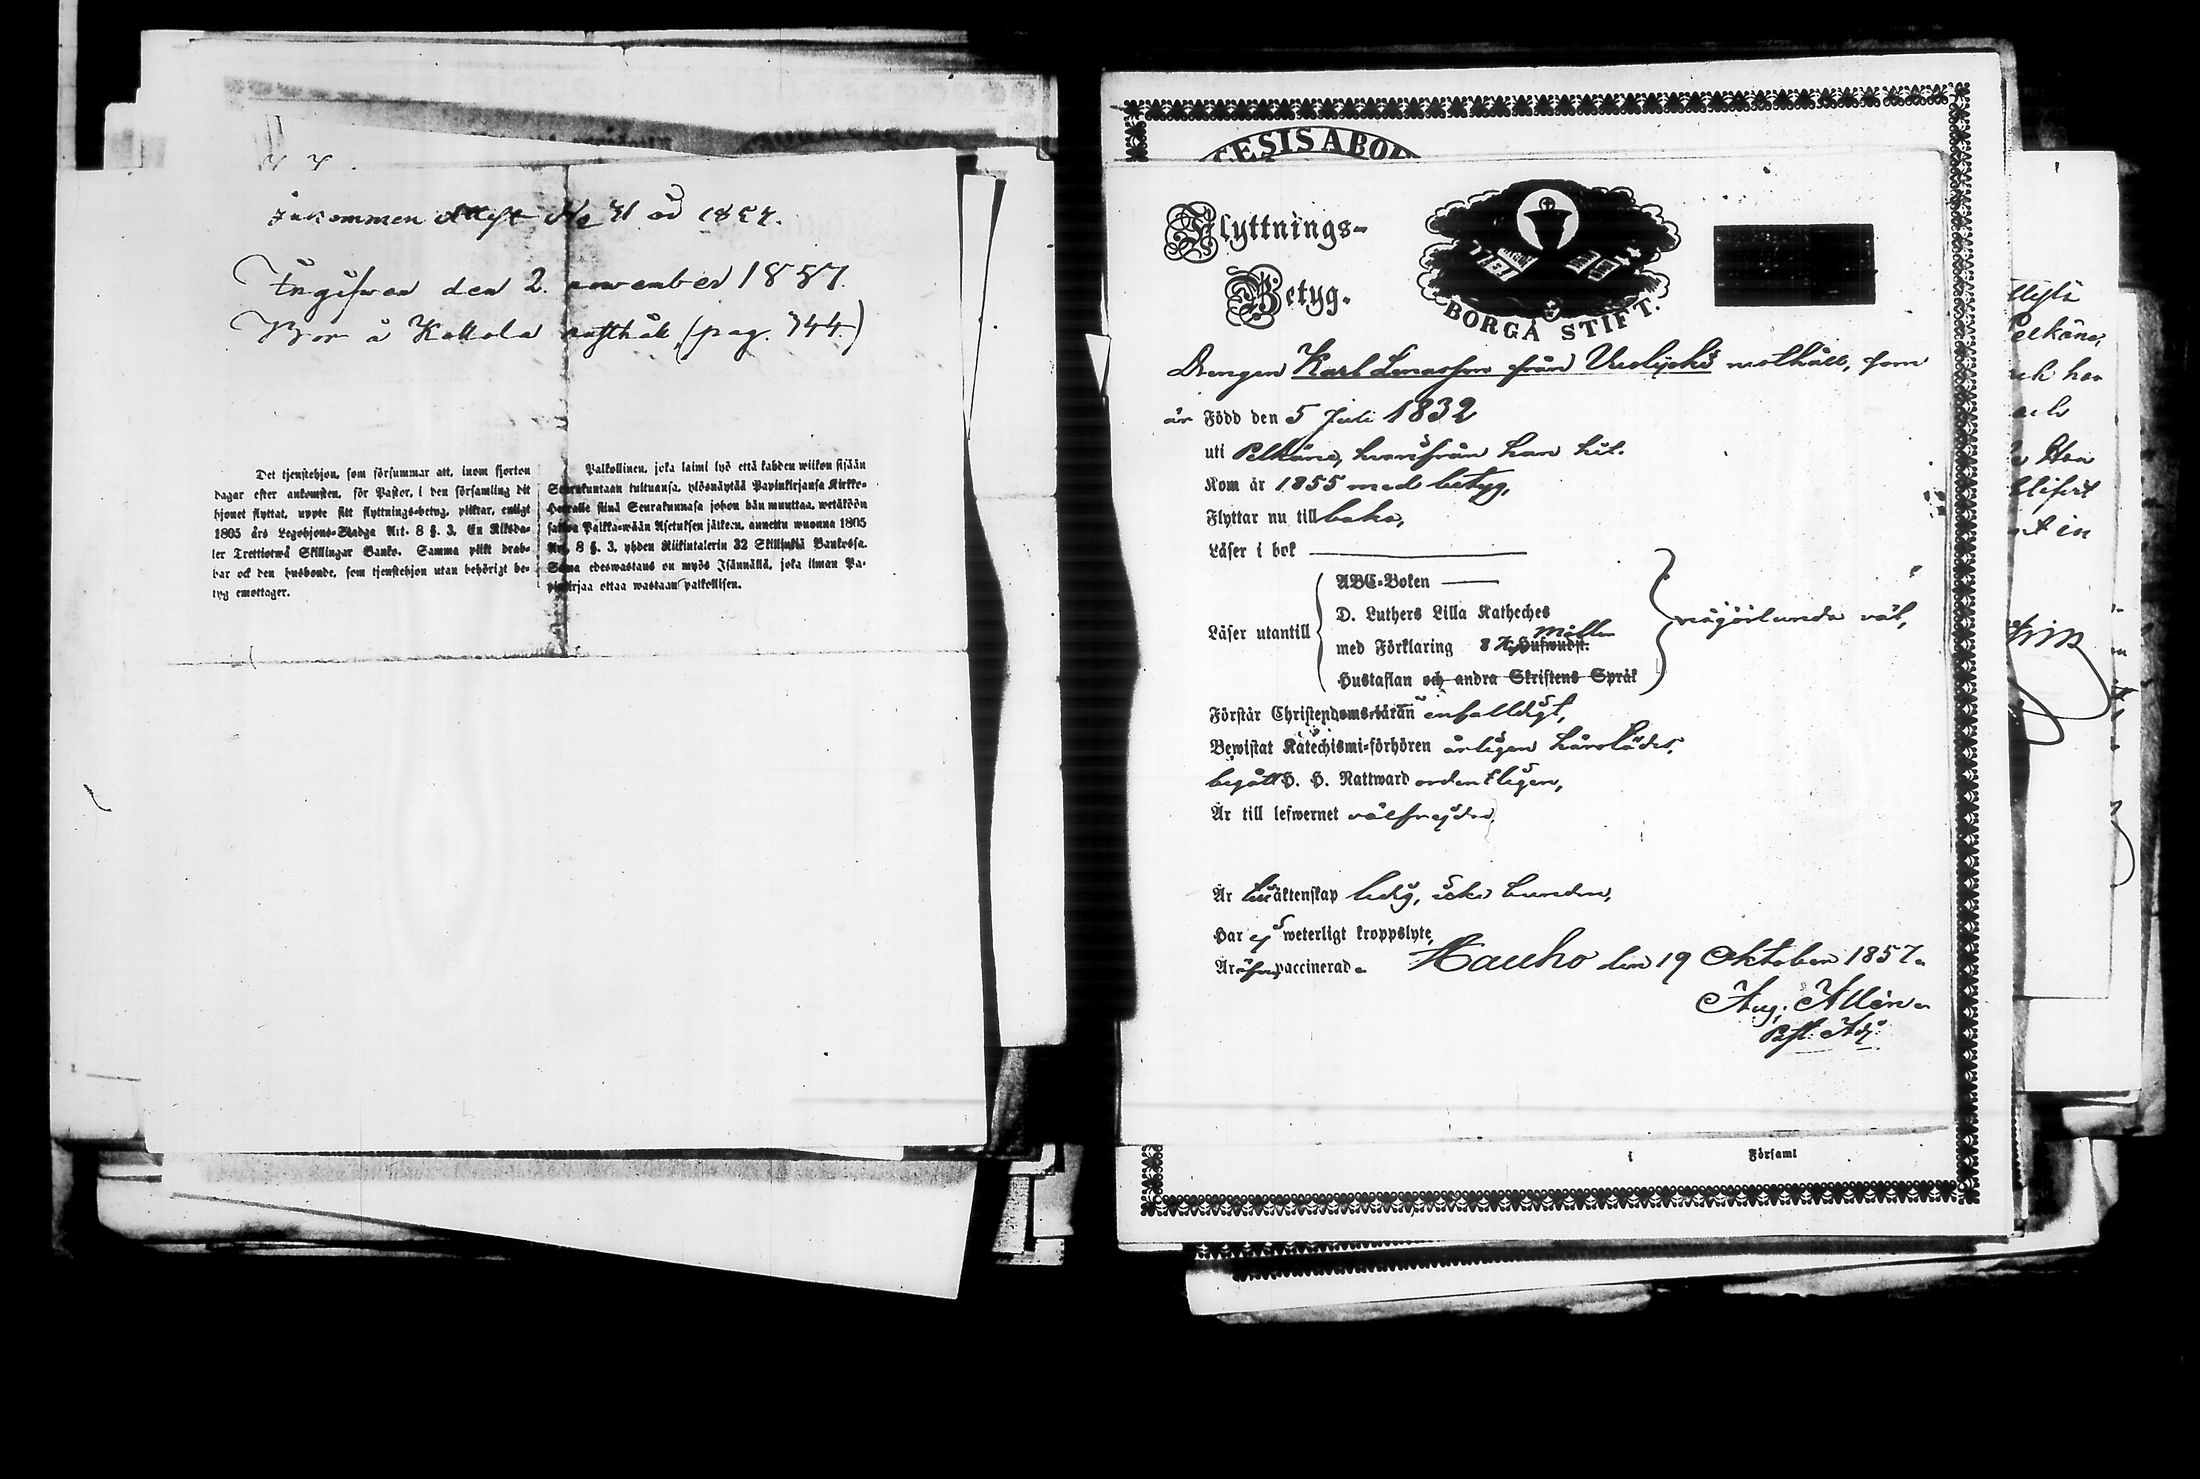 Inkommen Attest No 41 ad 1857.
Ingifven den 2. november 1857.
Bor å Kollola rusthåll, (pag. 744.)
Det tjenstehjon, som försummar att, inom fjorton
dagar efter ankomsten, för Pastor, i den församling dit
hjonet flyttat, uppte sitt flyttnings-betyg, pliktar, enligt
1805 års Legohjons-Stadga Art. 8 §. 3. En Riksda-
ler Trettiotwå Skillingar Banko. Samma plikt drab-
bar ock den husbonde, som tjenstehjon utan behörigt be-
tyg emottager.
Palkollinen, joka laimi lyö että kahden wiikon sisään
Seurakuntaan tultuansa, ylösnäytää Papinkirjansa Kirkko-
Herralle siinä Seurakunnasa johon hän muuttaa, wetäköön
sakkoa Palkka-wään Asetuksen jälkeen, annettu wuonna 1805
Art. 8 §. 3. yhden Riikintalerin 32 Skillinkiä Bankossa.
Sama edeswastaus on myös Isännällä, joka ilman Pa-
pinkirjaa ottaa wastaan palkollisen.
CESIS ABO
Flyttnings-
Betyg.
BORGÅ STIFT.
Drengen Karl Jonasson från Uuslyckä rusthåll, som
är Född den 5 Juli 1832
uti Pelkäne, hvarifrån han hit.
Kom år 1855 med betyg,
Flyttar nu till baka,
Läser i bok
ABC-Boken
Läser utantill
D. Luthers Lilla Katheches
med Förklaring
Hustaflan och andra Skriftens Språk
någorlunda väl,
Förstår Christendoms-läran enfalldigt,
Bewistat Katechismi-förhören årligen härstädes,
begått H. H. Nattward ordentligen,
Är till lefwernet välfrejdad.
Är till äktenskap ledig, icke bunden,
Har ej weterligt kroppslyte,
Är äfven vaccinerad.
Hauho den 19 Oktober 1857.
Aug. Allén
Past. Adj.
i Församl